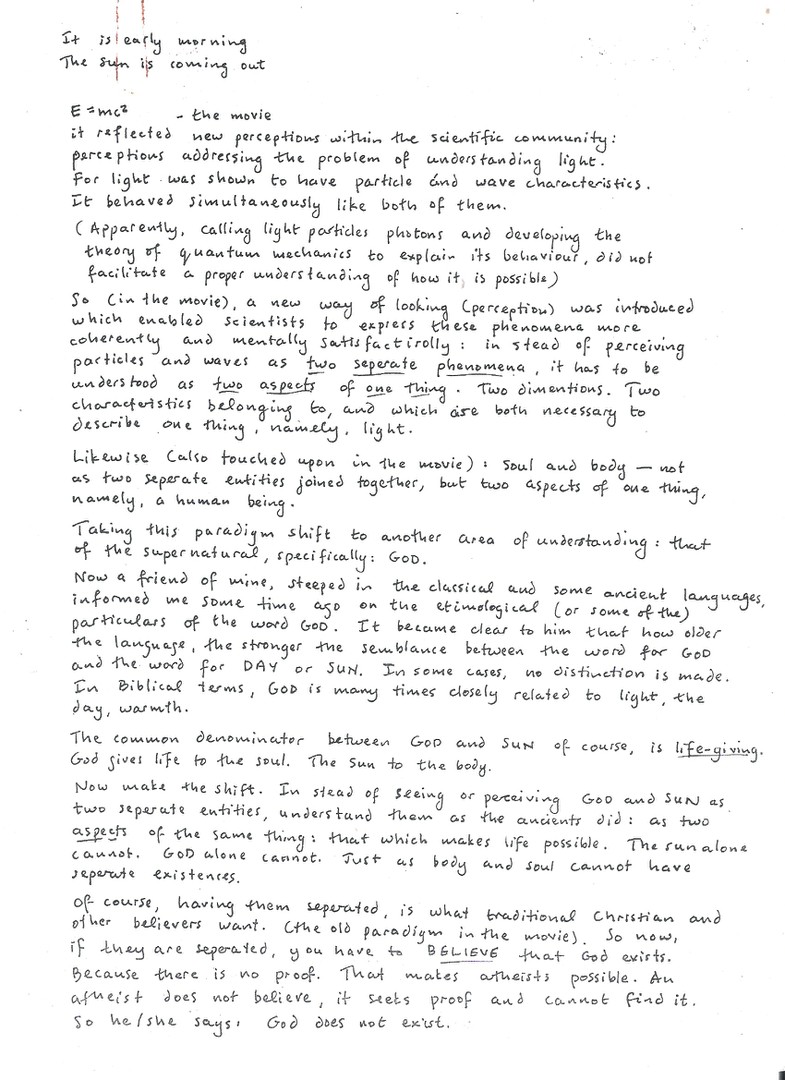 It is early morning
The sun is coming out
E=mc² - the movie
it reflected new perceptions within the scientific community:
perceptions addressing the problem of understanding light.
For light was shown to have particle ánd wave characteristics.
It behaved simultaneously like both of them.
(Apparently, calling light particles photons and developing the
theory of quantum mechanics to explain its behaviour, did not
facilitate a proper understanding of how it is possible)
So (in the movie), a new way of looking (perception) was introduced
which enabled scientists to express these phenomena more
coherently and mentally satisfactirolly: in stead of perceiving
particles and waves as two seperate phenomena, it has to be
understood as two aspects of one thing. Two dimentions. Two
characteristics belonging to, and which are both necessary to
describe one thing, namely, light.
Likewise (also touched upon in the movie): soul and body — not
as two seperate entities joined together, but two aspects of one thing,
namely, a human being.
Taking this paradigm shift to another area of understanding: that
of the supernatural, specifically: GOD.
Now a friend of mine, steeped in the classical and some ancient languages,
informed me some time ago on the etimological (or some of the)
particulars of the word GOD. It became clear to him that how older
the language, the stronger the semblance between the word for GOD
and the word for DAY or SUN. In some cases, no distinction is made.
In Biblical terms, GOD is many times closely related to light, the
day, warmth.
The common denominator between GOD and SUN of course, is life-giving.
God gives life to the soul. The Sun to the body.
Now make the shift. In stead of seeing or perceiving GOD and SUN as
two seperate entities, understand them as the ancients did: as two
aspects of the same thing: that which makes life possible. The sun alone
cannot. GOD alone cannot. Just as body and soul cannot have
seperate existences.
Of course, having them seperated, is what traditional Christian and
other believers want. (the old paradigm in the movie). So now,
if they are seperated, you have to BELIEVE that God exists.
Because there is no proof. That makes atheists possible. An
atheist does not believe, it seeks proof and cannot find it.
So he/she says: God does not exist.